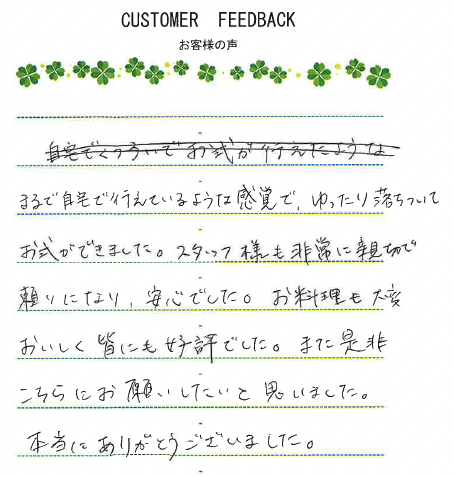 CUSTOMER FEEDBACK
お客様の声
自宅でくつろいでお式が行えたような
まるで自宅で行えているような感覚で、ゆったり落ちついて
お式ができました。スタッフ様も非常に親切で
頼りになり、安心でした。お料理も大変
おいしく皆にも好評でした。また是非
こちらにお願いしたいと思いました。
本当にありがとうございました。